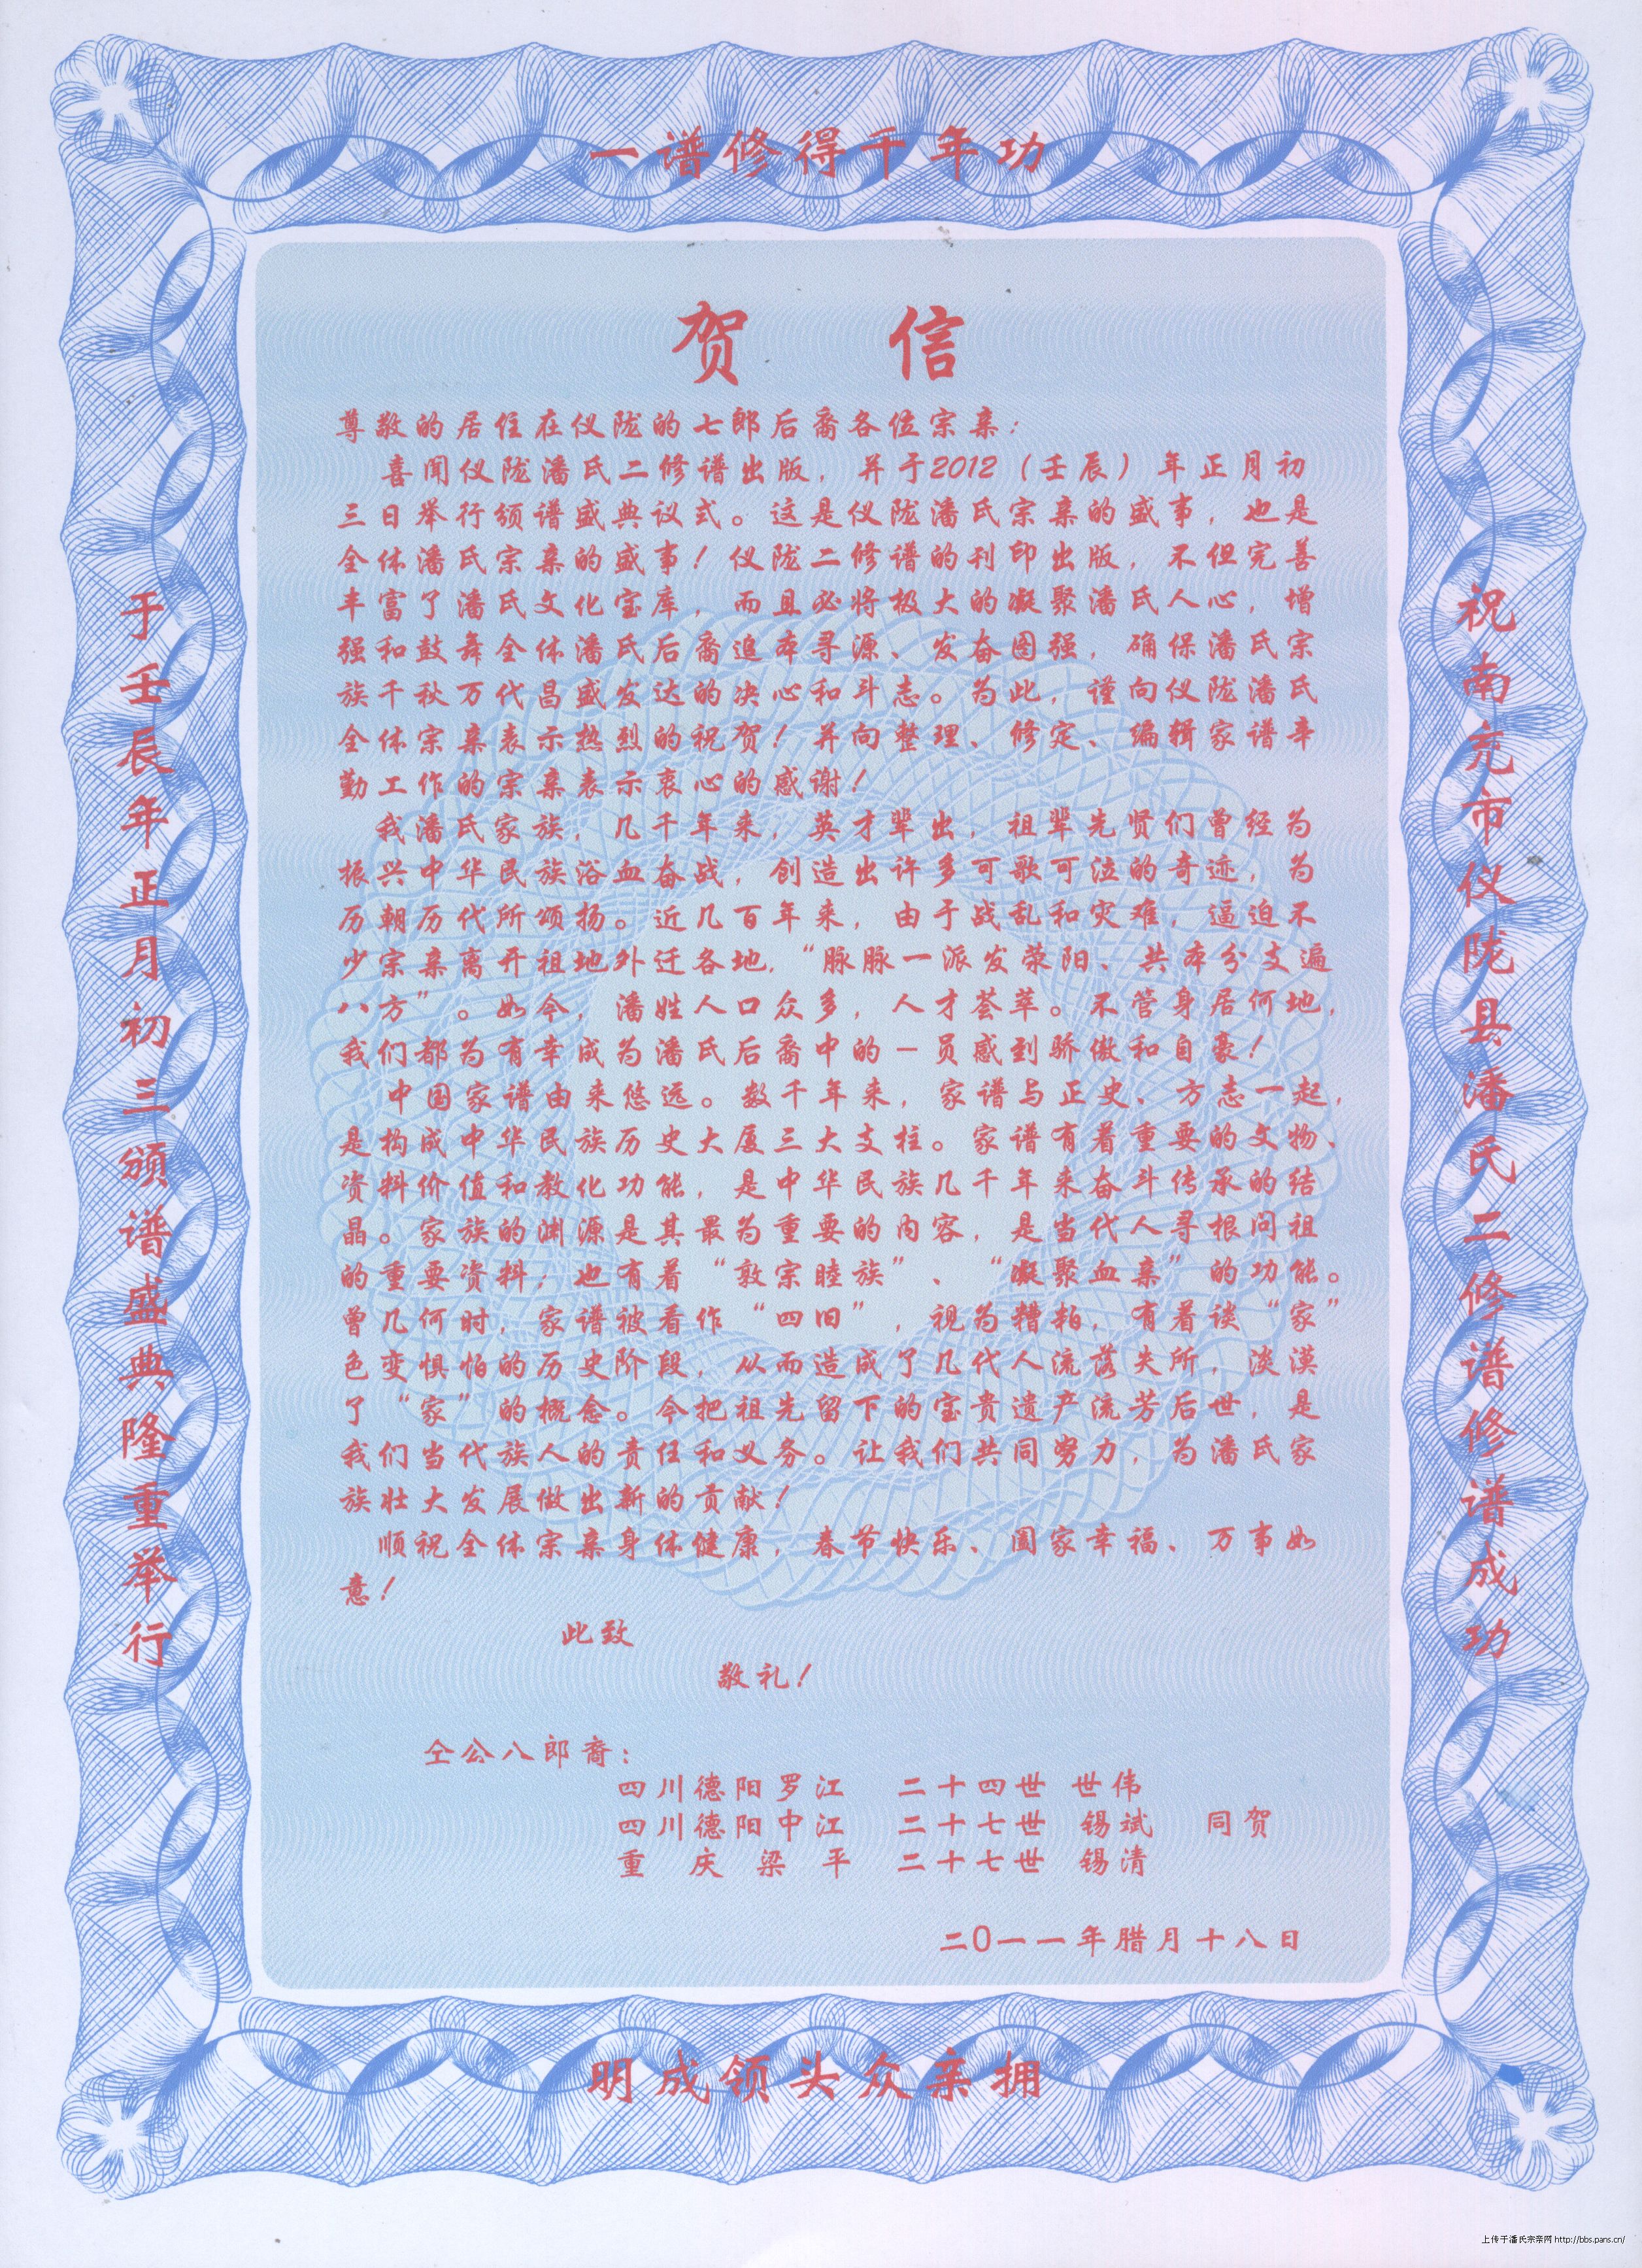 一谱修得千年功
祝南充市仪陇县潘氏二修谱修谱成功
于壬辰年正月初三颁谱盛典隆重举行
贺 信
尊敬的居住在仪陇的七郎后裔各位宗亲：
喜闻仪陇潘氏二修谱出版，并于2012（壬辰）年正月初
三日举行颁谱盛典议式。这是仪陇潘氏宗亲的盛事，也是
全体潘氏宗亲的盛事！仪陇二修谱的刊印出版，不但完善
丰富了潘氏文化宝库，而且必将极大的凝聚潘氏人心，增
强和鼓舞全体潘氏后裔追本寻源、发奋图强，确保潘氏宗
族千秋万代昌盛发达的决心和斗志。为此，谨向仪陇潘氏
全体宗亲表示热烈的祝贺！并向整理、修定、编辑家谱辛
勤工作的宗亲表示衷心的感谢！
我潘氏家族，几千年来，英才辈出，祖辈先贤们曾经为
振兴中华民族浴血奋战，创造出许多可歌可泣的奇迹，为
历朝历代所颂扬。近几百年来，由于战乱和灾难，逼迫不
少宗亲离开祖地外迁各地，“脉脉一派发荥阳、共本分支遍
八方”。如今，潘姓人口众多，人才荟萃。不管身居何地，
我们都为有幸成为潘氏后裔中的一员感到骄傲和自豪！
中国家谱由来悠远。数千年来，家谱与正史、方志一起，
是构成中华民族历史大厦三大支柱。家谱有着重要的文物、
资料价值和教化功能，是中华民族几千年来奋斗传承的结
晶。家族的渊源是其最为重要的内容，是当代人寻根问祖
的重要资料；也有着“敦宗睦族”、“凝聚血亲”的功能。
曾几何时，家谱被看作“四旧”，视为糟粕，有着谈“家”
色变惧怕的历史阶段，从而造成了几代人流落失所，淡漠
了“家”的概念。今把祖先留下的宝贵遗产流芳后世，是
我们当代族人的责任和义务。让我们共同努力，为潘氏家
族壮大发展做出新的贡献！
顺祝全体宗亲身体健康，春节快乐、阖家幸福、万事如
意！
此致
敬礼！
仝公八郎裔：
四川德阳罗江 二十四世 世伟
四川德阳中江 二十七世 锡斌 同贺
重庆梁平 二十七世 锡清
二0一一年腊月十八日
明成领头众亲拥
上传于潘氏宗亲网 http://bbs.pans.cn/